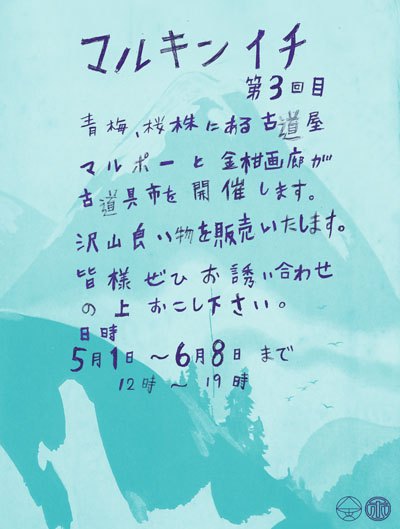 マルキンイチ
第3回目
青梅、桜株にある古道屋
マルポーと金柑画廊が
古道具市を開催します。
沢山良い物を販売いたします。
皆様ぜひお誘い合わせ
の上おこし下さい。
日時
5月1日〜6月8日まで
12時〜19時